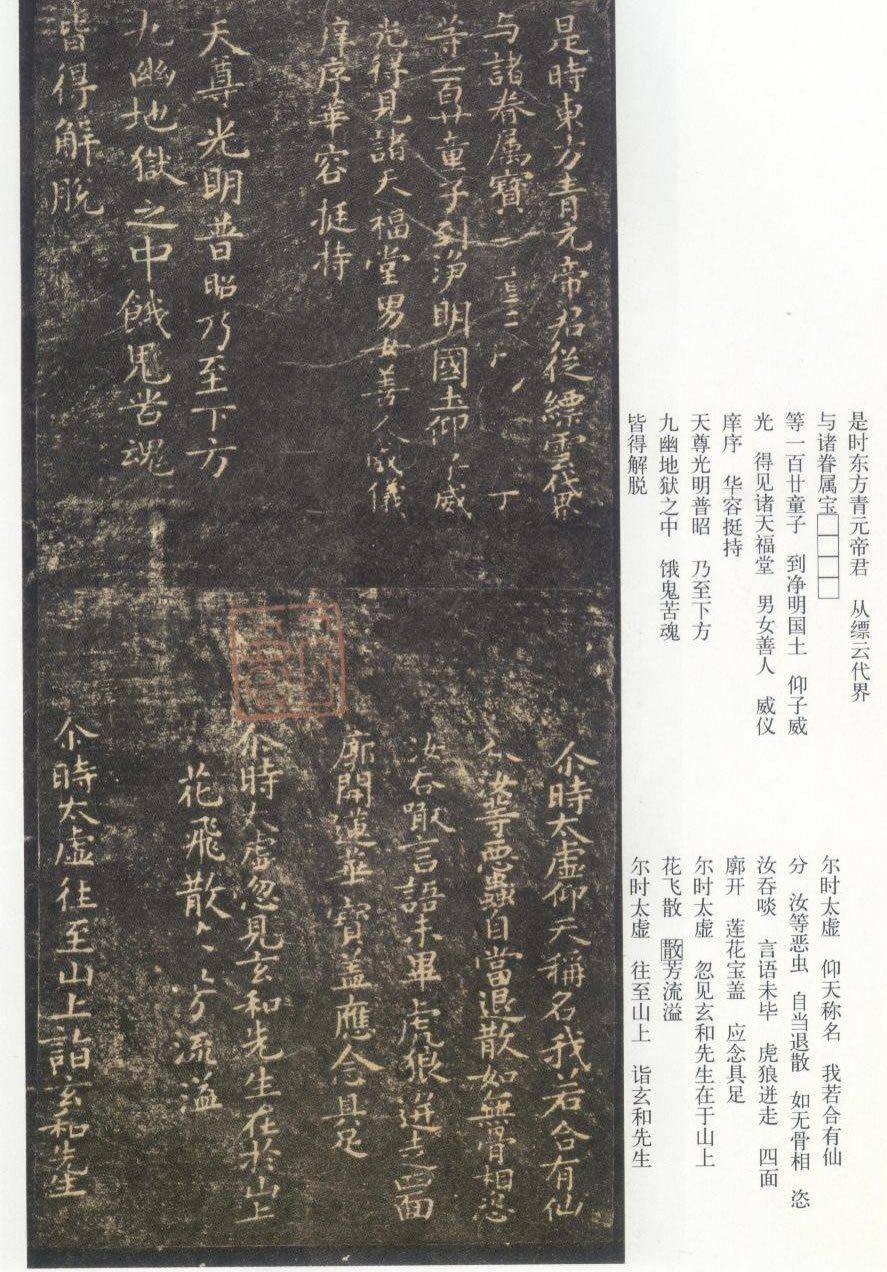 是時東方青元帝君從縹雲代界
与諸眷属寶
等一百廿童子到淨明國土仰子威
光得見諸天福堂男女善人威儀
庠序華容挺持
天尊光明普昭乃至下方
九幽地獄之中餓鬼苦魂
皆得解脱
尒時太虛仰天稱名我若合有仙
分汝等悪蟲自當退散如無骨相恣
汝吞噉言語未畢虎狼迸走四面
廓開蓮華寶盖應念具足
尒時太虛忽見玄和先生在於山上
花飛散〻芳流溢
尒時太虛往至山上詣玄和先生
是时东方青元帝君 从缥云代界
与诸眷属宝□□□□
等一百廿童子 到净明国土 仰子威
光 得见诸天福堂 男女善人 威仪
庠序 华容挺持
天尊光明普昭 乃至下方
九幽地狱之中 饿鬼苦魂
皆得解脱
尔时太虚 仰天称名 我若合有仙
分 汝等恶虫 自当退散 如无骨相 恣
汝吞啖 言语未毕 虎狼迸走 四面
廓开 莲花宝盖 应念具足
尔时太虚 忽见玄和先生在于山上
花飞散 散芳流溢
尔时太虚 往至山上 诣玄和先生